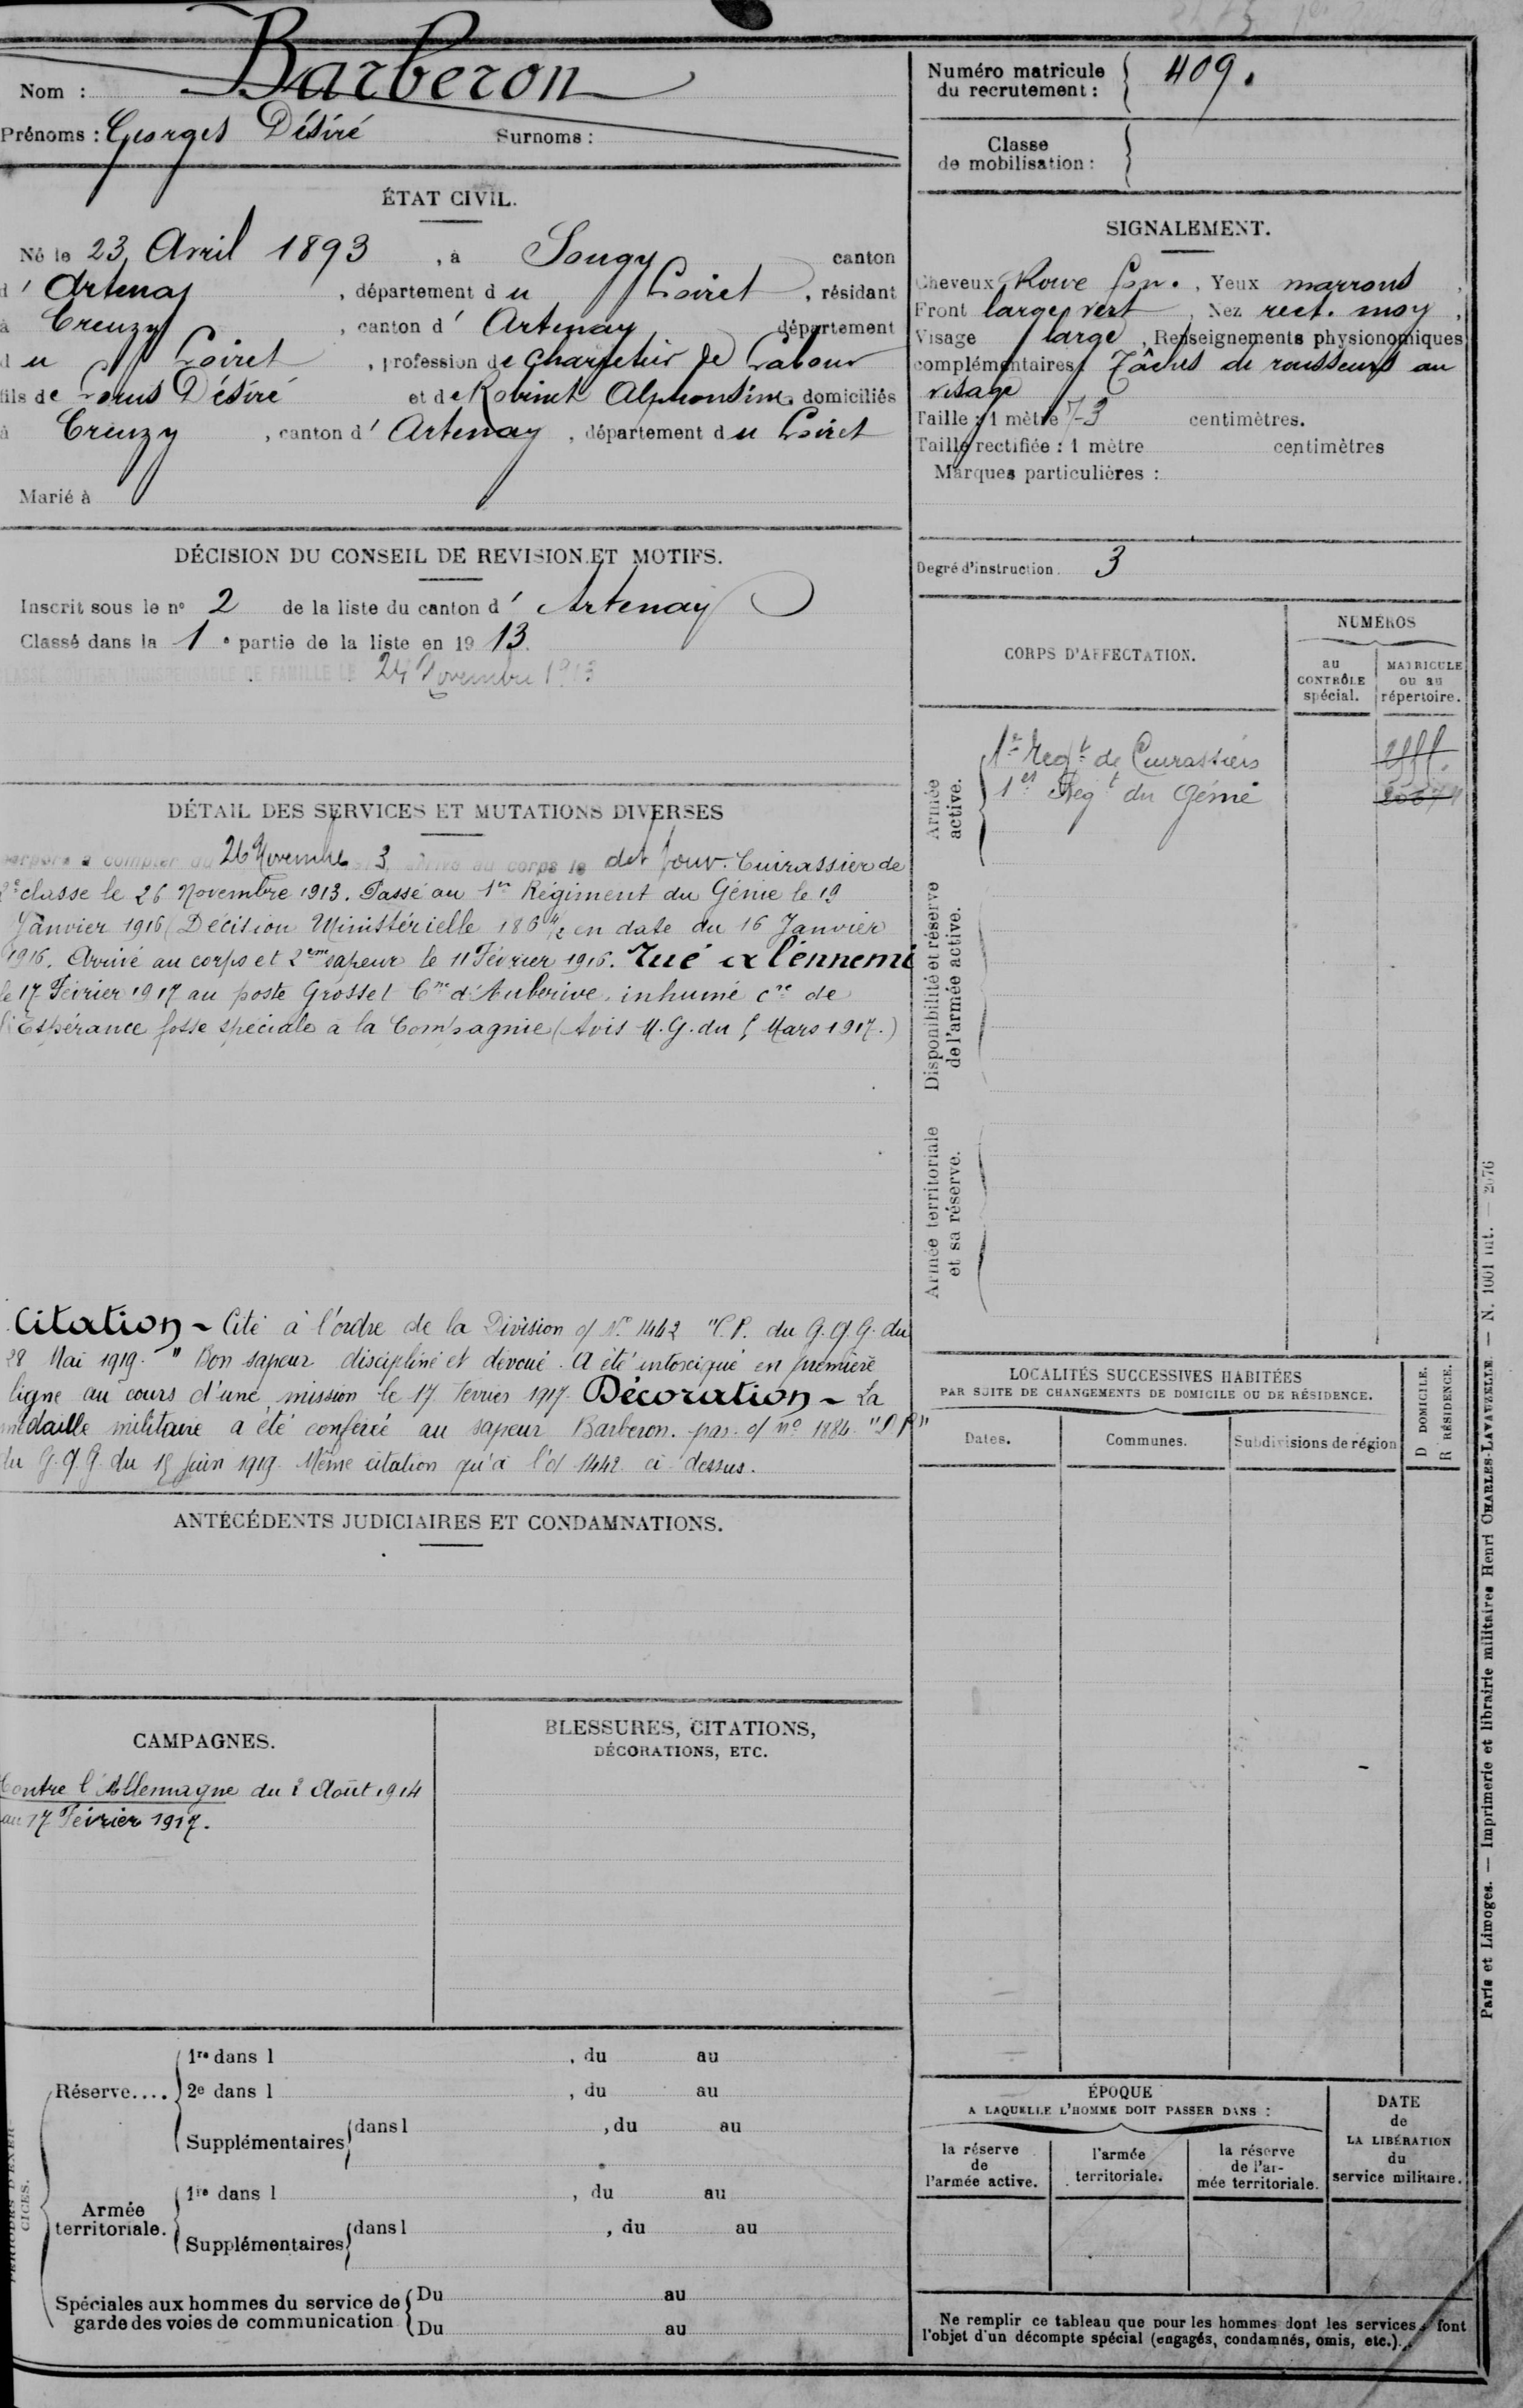 Nom : Barberon
Prénoms : Georges Désiré Surnoms :
ÉTAT CIVIL.
Né le 23 Avril 1893, à Sougy canton
d'Artenay, département du Loiret, résidant
à Creuzy, canton d'Artenay département
du Loiret, profession de Charretier de Labour
fils de Louis Désiré et de Robinet Alphonsine domiciliés
à Creuzy, canton d'Artenay, département du Loiret
Marié à
DÉCISION DU CONSEIL DE REVISION ET MOTIFS.
Inscrit sous le n° 2 de la liste du canton d'Artenay
Classé dans la 1e partie de la liste en 1913.
CLASSÉ SOUTIEN INDISPENSABLE DE FAMILLE LE 24 Novembre 1913
DÉTAIL DES SERVICES ET MUTATIONS DIVERSES
à compter du 26 Novembre 3, arrivé au corps le dit jour. Cuirassier de
2e classe le 26 Novembre 1913. Passé au 1er Régiment du Génie le 19
Janvier 1916 (Décision Ministérielle 186 4/2 en date du 16 Janvier
1916. Arrivé au corps et 2eme sapeur le 11 Février 1916. Tué à l'ennemi
le 17 Février 1917 au poste Grosset Cne d'Auberive, inhumé cre de
l'Espérance fosse spéciale à la Compagnie (Avis M.G. du 5 Mars 1917.)
Citation - Cité à l'ordre de la Division o/ N° 1442 "C.P. du G.Q.G. du
28 Mai 1919. " Bon sapeur discipliné et dévoué. A été intoxiqué en première
ligne au cours d'une mission le 17 Février 1917. Décoration - La
médaille militaire a été conférée au sapeur Barberon. par o/ n° 1884. "D.P"
du G.Q.G. du 15 Juin 1919. Même citation qu'à l'o/ 1442 ci-dessus.
ANTÉCÉDENTS JUDICIAIRES ET CONDAMNATIONS.
CAMPAGNES.
Contre l'Allemagne du 2 Août 1914
au 17 Février 1917.
BLESSURES, CITATIONS,
DÉCORATIONS, ETC.
PÉRIODES D'EXER-
CICES.
Réserve....
1re dans l , du au
2e dans l , du au
Supplémentaires dans l , du au
Armée
territoriale.
1re dans l , du au
Supplémentaires dans l , du au
Spéciales aux hommes du service de
garde des voies de communication
Du au
Du au
Numéro matricule
du recrutement : 409.
Classe
de mobilisation :
SIGNALEMENT.
Cheveux Roux fon., Yeux marrons,
Front large vert, Nez rect. moy,
Visage large, Renseignements physionomiques
complémentaires Tâches de rousseurs au
visage
Taille : 1 mètre 73 centimètres.
Taille rectifiée : 1 mètre centimètres
Marques particulières :
Degré d'instruction. 3
CORPS D'AFFECTATION.
NUMÉROS
au
CONTRÔLE
spécial.
MATRICULE
ou au
répertoire.
Armée
active.
1er Regt de Cuirassiers
1er Regt du Génie
Disponibilité et réserve
de l'armée active.
Armée territoriale
et sa réserve.
LOCALITÉS SUCCESSIVES HABITÉES
PAR SUITE DE CHANGEMENTS DE DOMICILE OU DE RÉSIDENCE.
Dates.
Communes.
Subdivisions de région
D DOMICILE.
R RÉSIDENCE.
ÉPOQUE
A LAQUELLE L'HOMME DOIT PASSER DANS :
la réserve
de
l'armée active.
l'armée
territoriale.
la réserve
de l'ar-
mée territoriale.
DATE
de
LA LIBÉRATION
du
service militaire.
Ne remplir ce tableau que pour les hommes dont les services font
l'objet d'un décompte spécial (engagés, condamnés, omis, etc.).
Paris et Limoges. — Imprimerie et librairie militaires Henri CHARLES-LAVAUZELLE. — N. 1001 int. — 2076